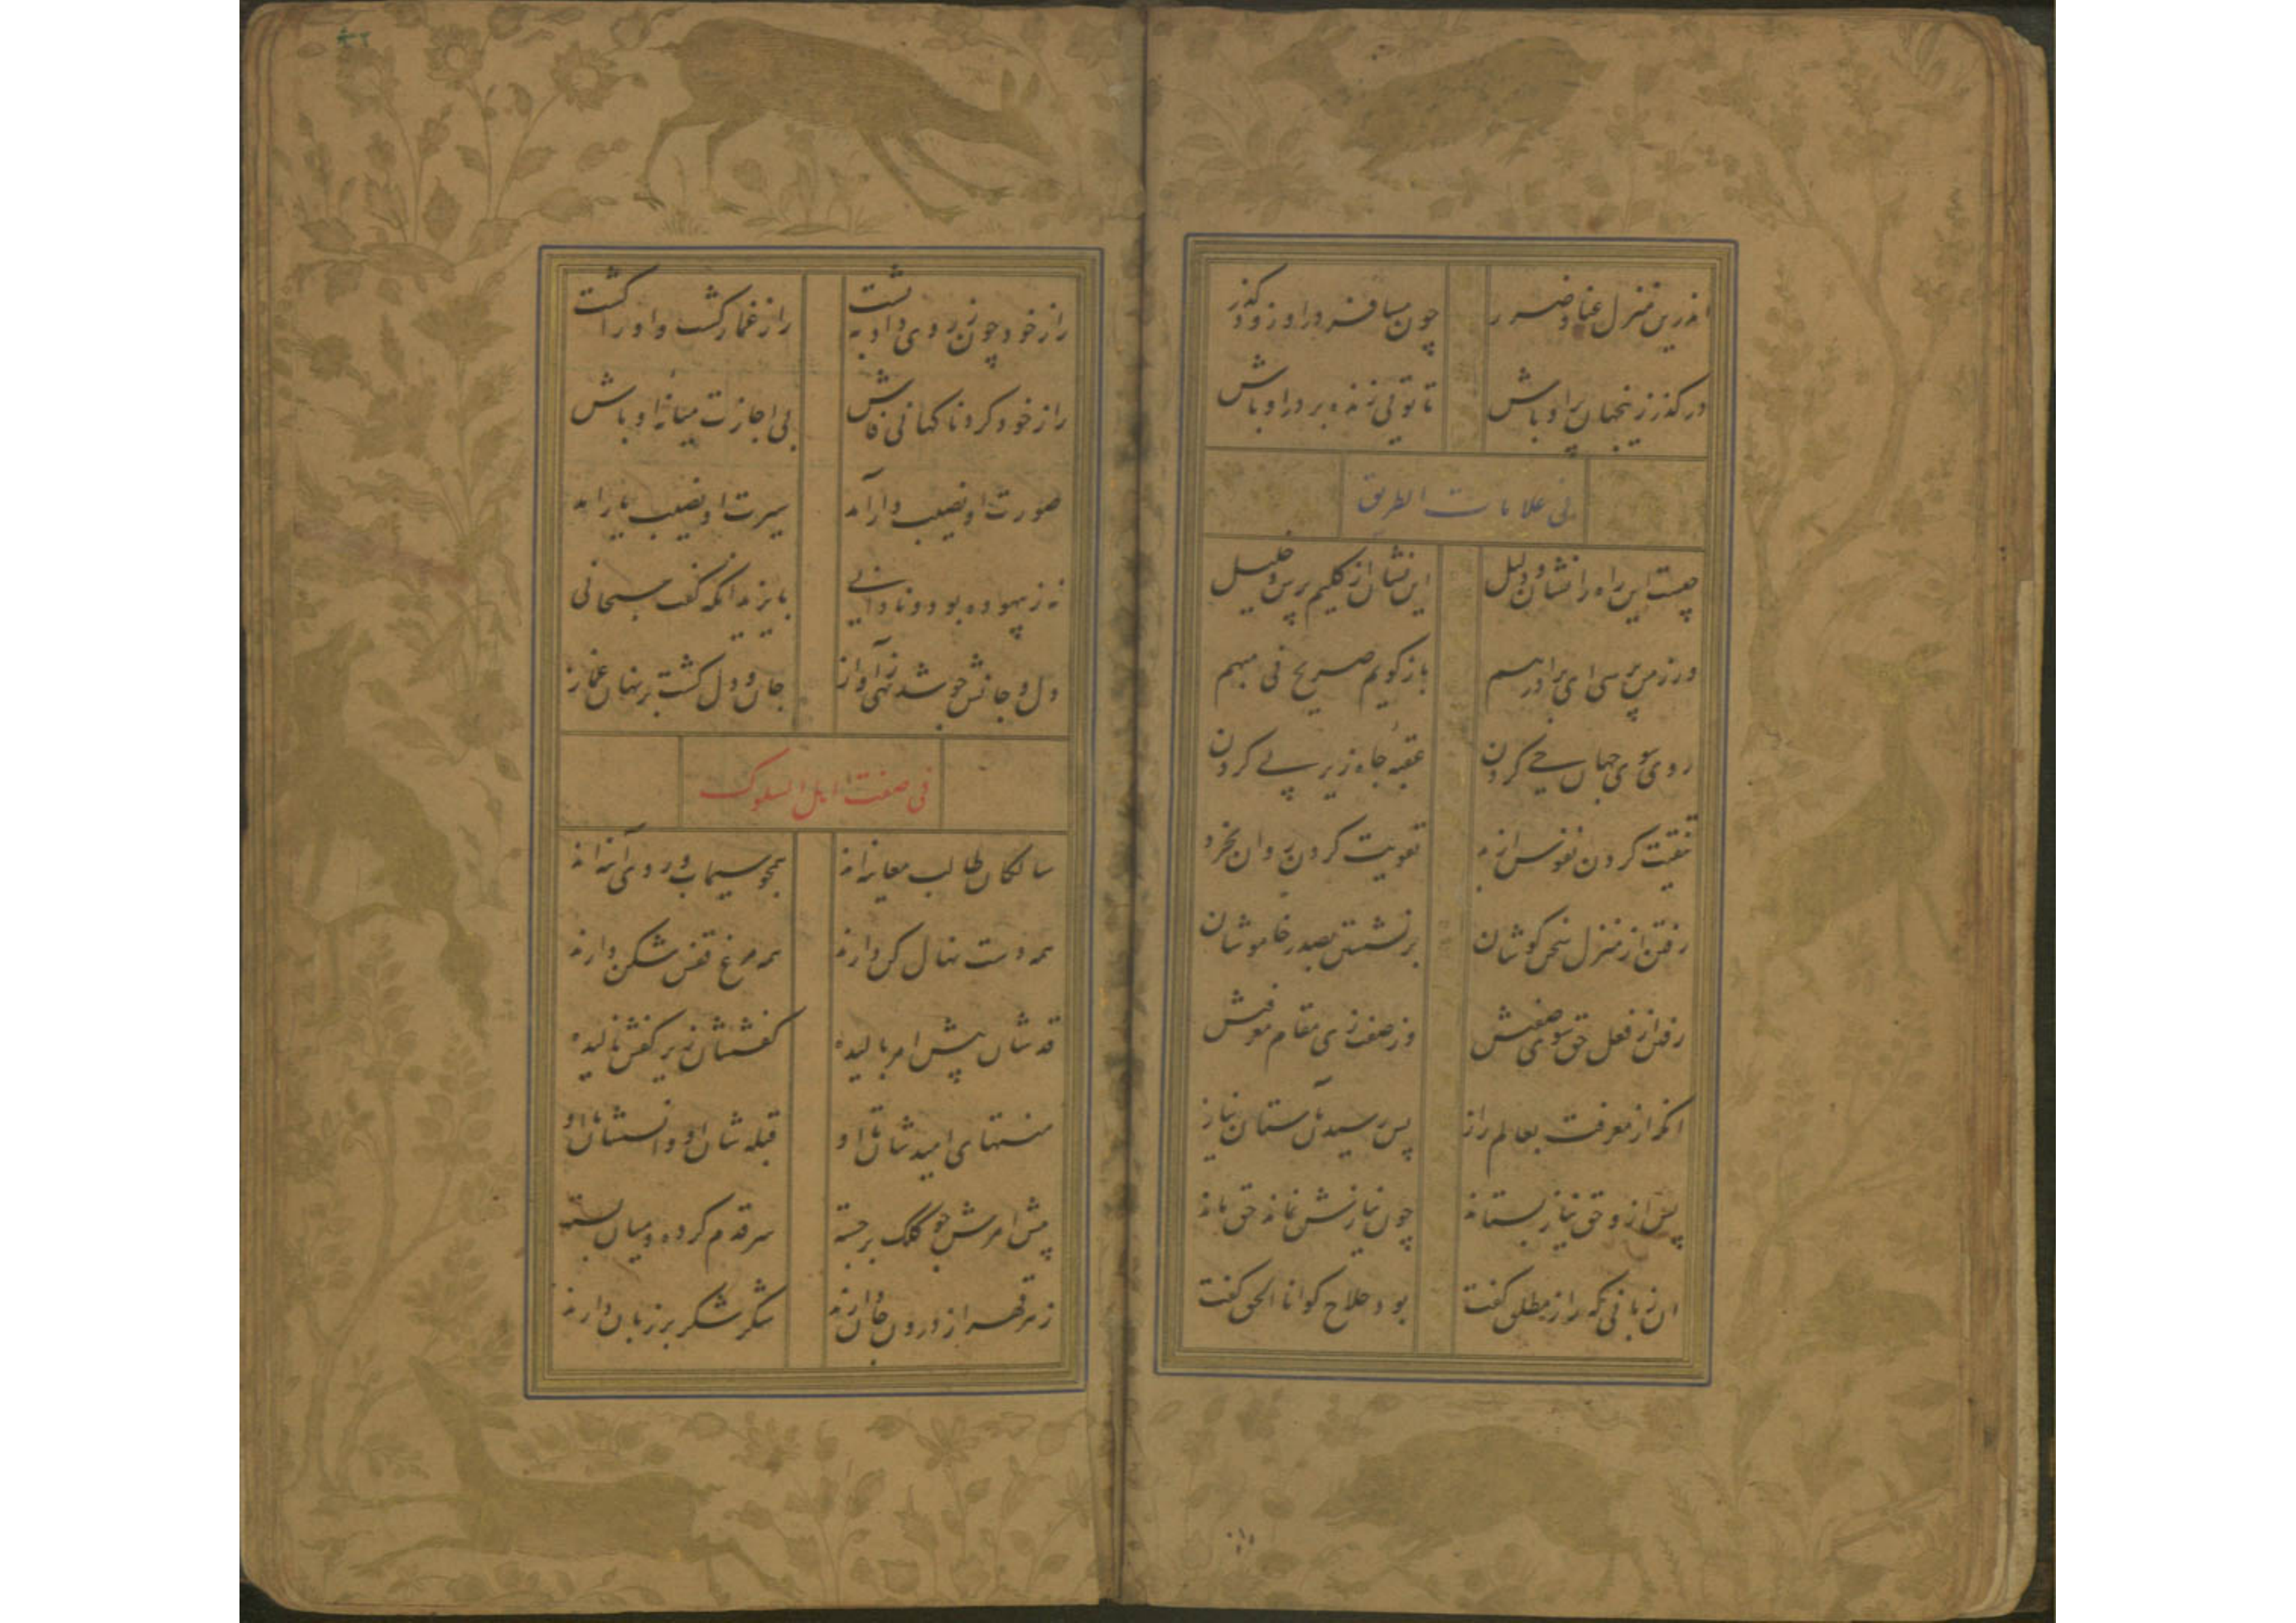 اندرین منزل عنا و ضرر
چون مسافر درا و زود گذر
در گذر زینجهان پر اوباش
تا تویی زنده بر در او باش
فی علامات الطریق
چیست این راه را نشان و دلیل
این نشان از کلیم پرس و خلیل
ور ز من پرسی ای برادر هم
باز گویم صریح نی مبهم
روی سوی جهان حی کردن
عقبه جاه زیر پی کردن
تنقیت کردن نفوس از بد
تقویت کردن روان بخرد
رفتن از منزل سخن کوشان
بر نشستن بصدر خاموشان
رفتن از فعل حق سوی صفتش
وز صفت زی مقام معرفتش
انکه از معرفت بعالم راز
پس رسیدن بآستان نیاز
پس ازو حق نیاز بستاند
چون نیازش نماند حق ماند
ان زبانی که راز مطلق گفت
بود حلاج کو انا الحق گفت
راز خود چون ز روی داد به پشت
راز غماز گشت و او را کشت
راز خود کرد ناگهانی فاش
بی اجازت میانه اوباش
صورت او نصیب دار آمد
سیرت او نصیب یار امد
نه ز بیهوده بود و نادانی
بایزید انکه گفت سبحانی
دل و جانش چو شد تهی ز آواز
جان و دل گشت بر نهان غماز
فی صفت اهل السلوک
سالکان طالب معاینه اند
همچو سیماب و روی آینه اند
همه دست نهال کن دارند
همه مرغ قفس شکن دارند
قدشان پیش امر بالیده
کفششان زیر کفش نالیده
منتهای امیدشان تا او
قبله شان او و انسشان با او
پیش امرش چو کلک برجسته
سر قدم کرده و میان بسته
زهر قهر از درون جان دارند
شکر شکر بر زبان دارند